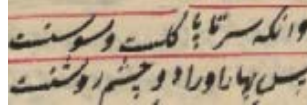 وانکه سر تا پا گلست و سوسنست
پس بهار او را دو چشم روشنست